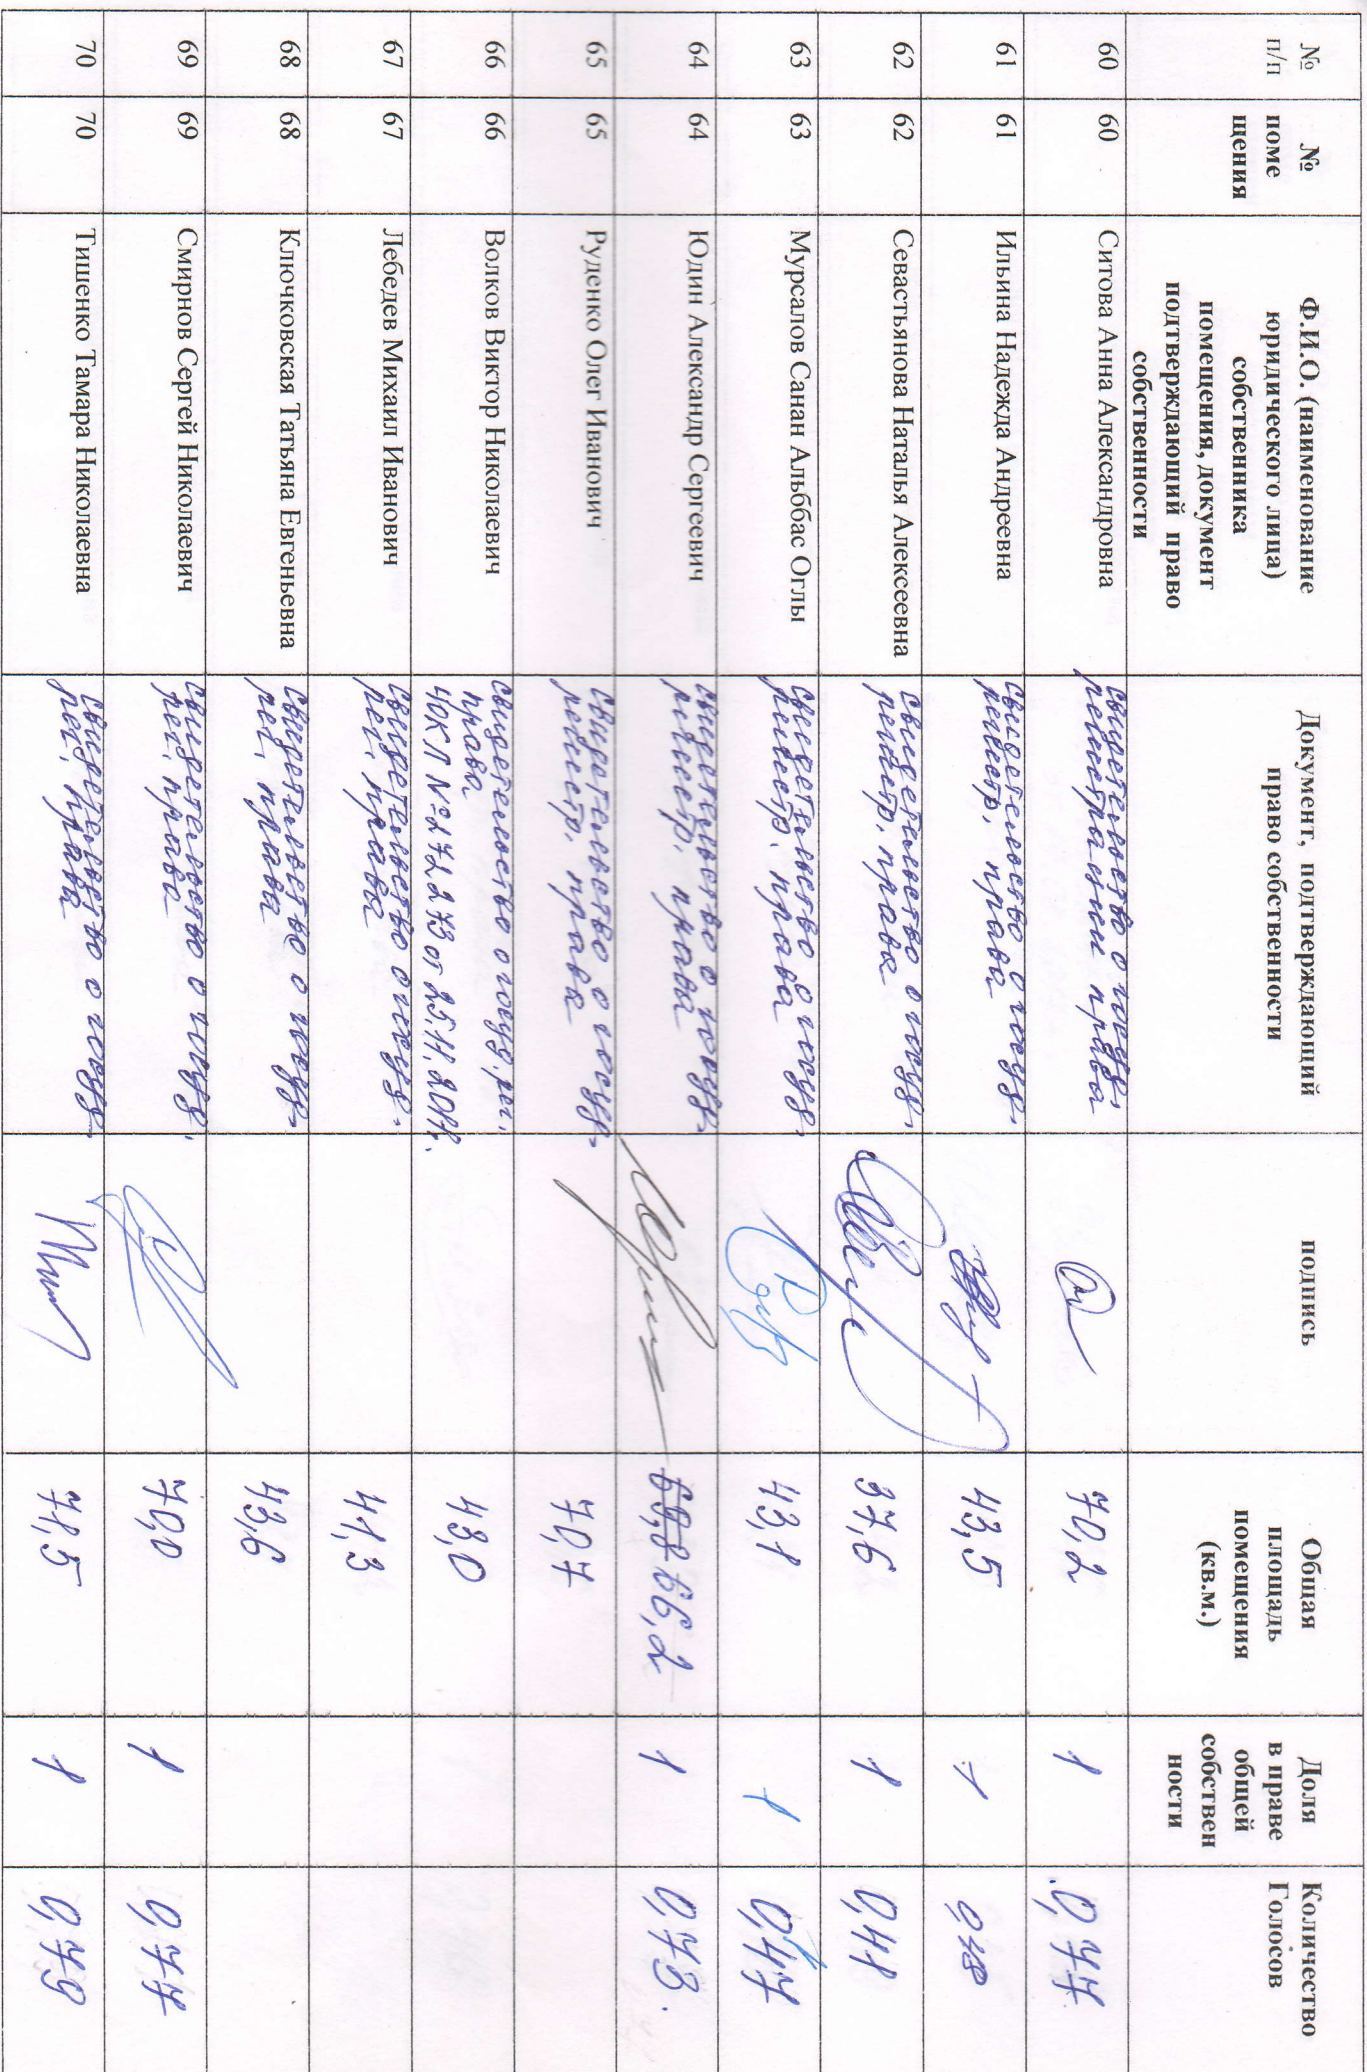 № п/п
№ поме щения
Ф.И.О. (наименование юридического лица) собственника помещения, документ подтверждающий право собственности
Документ, подтверждающий право собственности
подпись
Общая площадь помещения (кв.м.)
Доля в праве общей собствен ности
Количество Голосов
60 60 Ситова Анна Александровна
свидетельство о госуд.
регистрации права
70,2 1 0,77
61 61 Ильина Надежда Андреевна
свидетельство о госуд.
регистр. права
43,5 1 0,48
62 62 Севастьянова Наталья Алексеевна
свидетельство о госуд.
регистр. права
37,6 1 0,41
63 63 Мурсалов Санан Альббас Оглы
свидетельство о госуд.
регистр. права
43,1 1 0,47
64 64 Юдин Александр Сергеевич
свидетельство о госуд.
регистр. права
66,2 1 0,73.
65 65 Руденко Олег Иванович
свидетельство о госуд.
регистр. права
70,7
66 66 Волков Виктор Николаевич
свидетельство о госуд. рег.
права
40 КЛ №272273 от 25.11.2011г.
43,0
67 67 Лебедев Михаил Иванович
свидетельство о госуд.
рег. права
41,3
68 68 Ключковская Татьяна Евгеньевна
свидетельство о госуд.
рег. права
43,6
69 69 Смирнов Сергей Николаевич
свидетельство о госуд.
рег. права
70,0 1 0,77
70 70 Тишенко Тамара Николаевна
свидетельство о госуд.
рег. права
71,5 1 0,79